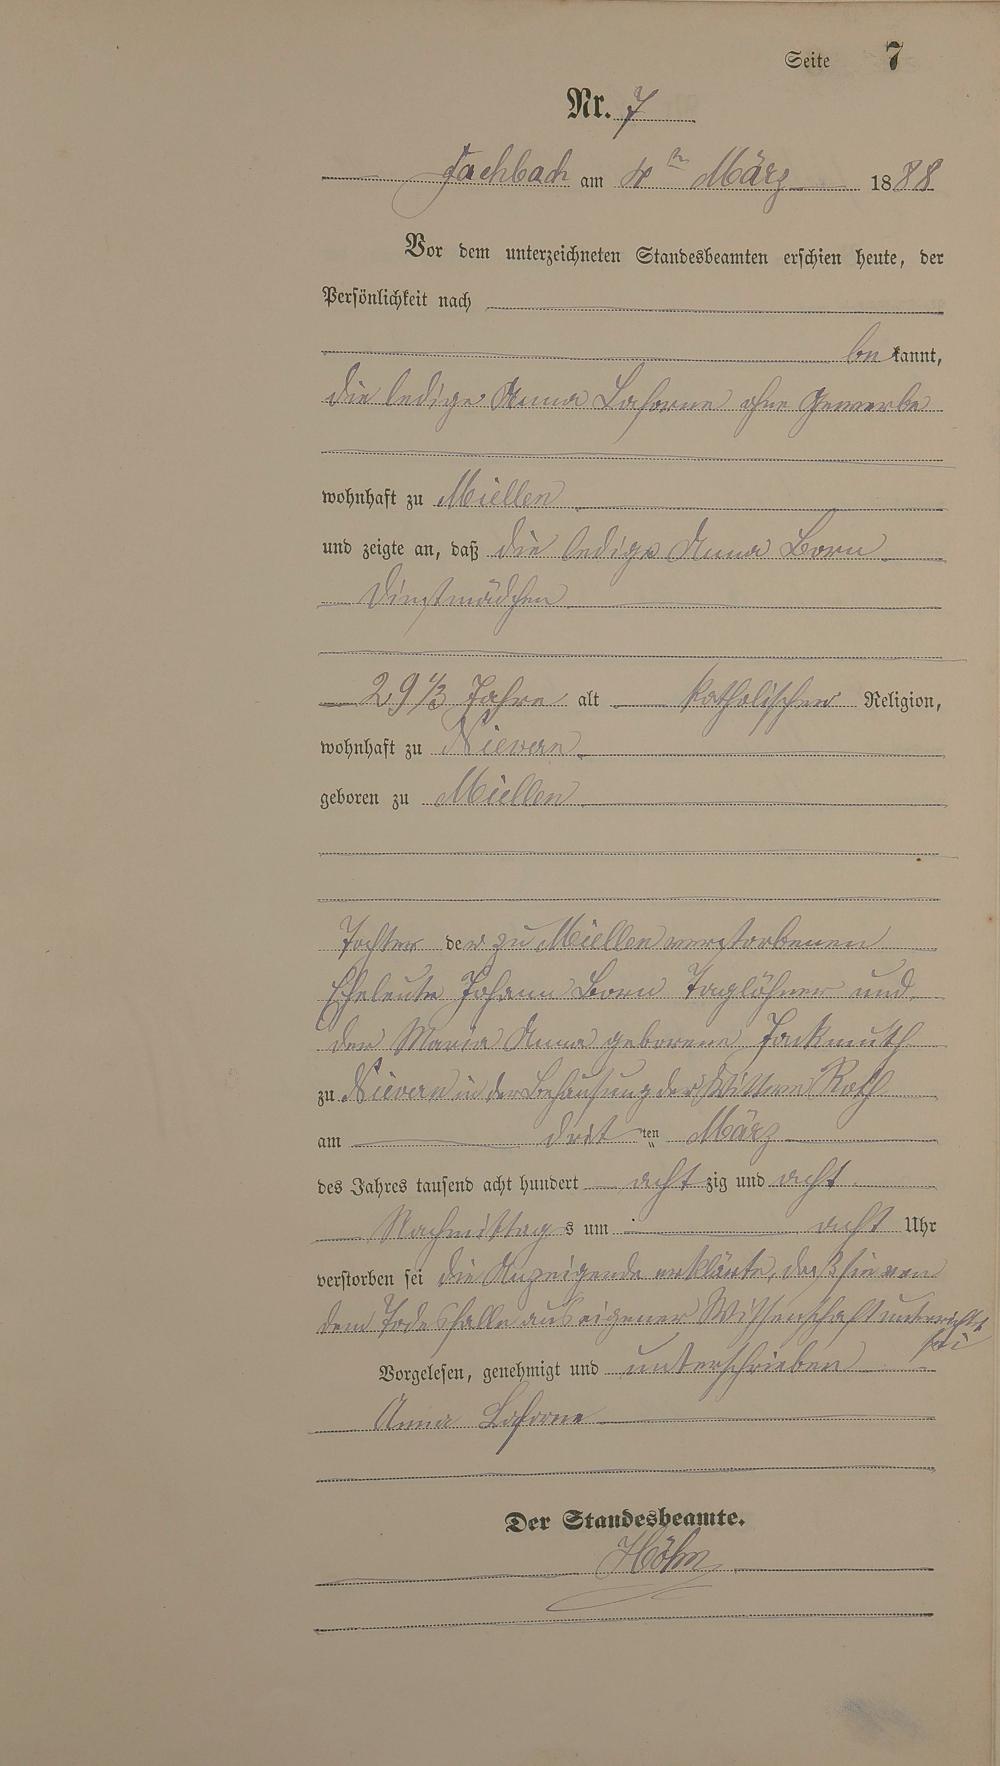 Seite 7
Nr. 7
Fachbach am 4ten März 1888
Vor dem unterzeichneten Standesbeamten erschien heute, der
Persönlichkeit nach
bekannt,
die ledige Anna Laforne ohne Gewerbe
wohnhaft zu Miellen
und zeigte an, daß die ledige Anna Born
Dienstmädchen
29 1/3 Jahre alt katholischer Religion,
wohnhaft zu Nievern
geboren zu Miellen
Tochter der zu Miellen verstorbenen
Eheleute Johann Born Taglöhner und
der Maria Anna geborene
zu Nievern in der Behausung der Wittwe Roth
am dritten März
des Jahres tausend acht hundert achtzig und acht
Nachmittags um acht Uhr
verstorben sei die Anzeigende erklärte, daß sie von
dem Todesfalle aus eigener Wissenschaft unterrichtet
sei
Vorgelesen, genehmigt und unterschrieben
Anna Laforne
Der Standesbeamte.
Höhn